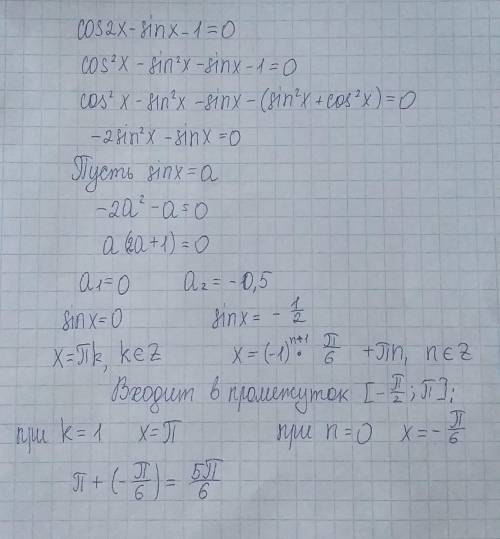 cos2x-sinx-1=0
cos²x-sin²x-sinx-1=0
cos²x-sin²x-sinx-(sin²x+cos²x)=0
-2sin²x-sinx=0
Пусть sinx=a
-2a²-a=0
a(2a+1)=0
a₁=0 a₂=-0,5
sinx=0 sinx=-1/2
x=πk, k∈Z x=(-1)ⁿ⁺¹·π/6+πn, n∈Z
Входит в промежуток [-π/2;π];
при k=1 x=π при n=0 x=-π/6
π+(-π/6)=5π/6